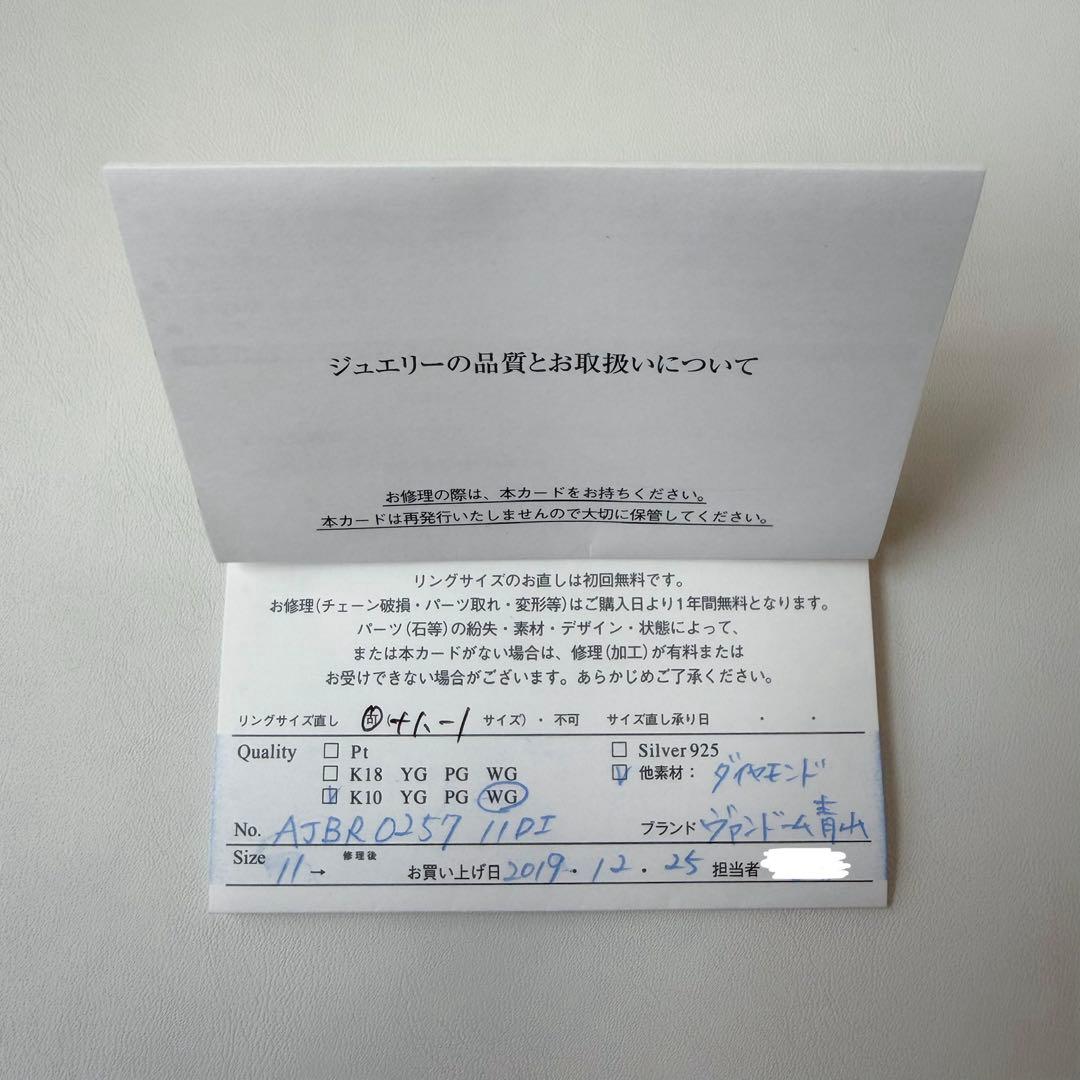 ジュエリーの品質とお取扱いについて
お修理の際は、本カードをお持ちください。
本カードは再発行いたしませんので大切に保管してください。
リングサイズのお直しは初回無料です。
お修理(チェーン破損・パーツ取れ・変形等)はご購入日より1年間無料となります。
パーツ(石等)の紛失・素材・デザイン・状態によって、
または本カードがない場合は、修理(加工)が有料または
お受けできない場合がございます。あらかじめご了承ください。
リングサイズ直し 可(+1、-1 サイズ)・不可 サイズ直し承り日 ・ ・
Quality □ Pt □ Silver925
□ K18 YG PG WG ☑ 他素材: ダイヤモンド
☑ K10 YG PG WG
No. AJBR0257 11DI ブランド ヴァンドーム青山
Size 11 → 修理後 お買い上げ日 2019・12・25 担当者